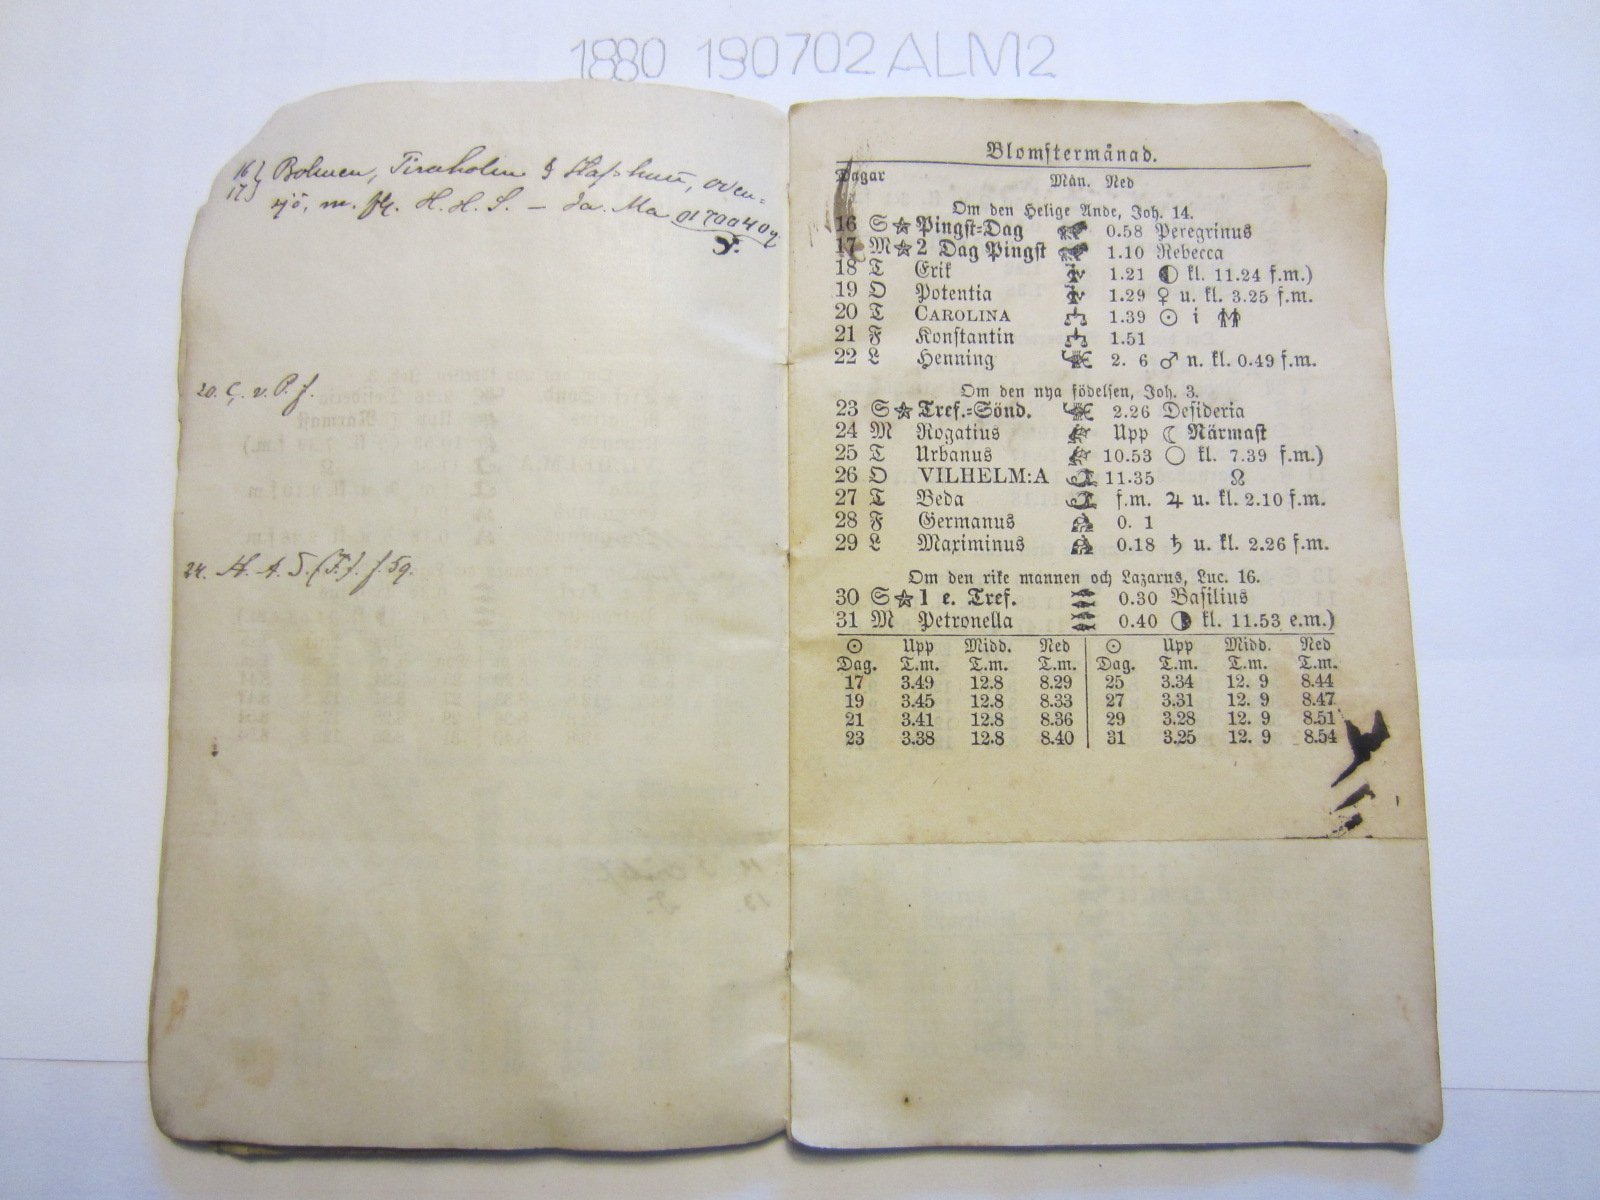 1880 190702 ALM2
16} Bolmen, Tiraholm & Stafshult, oven-
17} sjö, m. fl. H. H. S. – Ja. Ma
20. C. v. P. f.
24. H. A. S. (F). f. 59.
Blomstermånad.
Dagar Mån. Ned
Om den Helige Ande, Joh. 14.
16 S ☆ Pingst-Dag 0.58 Peregrinus
17 M ☆ 2 Dag Pingst 1.10 Rebecca
18 T Erik 1.21 ◐ kl. 11.24 f.m.)
19 O Potentia 1.29 ♀ u. kl. 3.25 f.m.
20 T CAROLINA ♎ 1.39 ☉ i ♊
21 F Konstantin ♎ 1.51
22 L Henning 2. 6 ♂ n. kl. 0.49 f.m.
Om den nya födelsen, Joh. 3.
23 S ☆ Tref.-Sönd. 2.26 Desideria
24 M Rogatius Upp ☾ Närmast
25 T Urbanus 10.53 ○ kl. 7.39 f.m.)
26 O VILHELM:A 11.35 ☊
27 T Beda f.m. ♃ u. kl. 2.10 f.m.
28 F Germanus 0. 1
29 L Maximinus 0.18 ♄ u. kl. 2.26 f.m.
Om den rike mannen och Lazarus, Luc. 16.
30 S ☆ 1 e. Tref. 0.30 Basilius
31 M Petronella 0.40 ◑ kl. 11.53 e.m.)
☉ Upp Midd. Ned ☉ Upp Midd. Ned
Dag. T.m. T.m. T.m. Dag. T.m. T.m. T.m.
17 3.49 12.8 8.29 25 3.34 12. 9 8.44
19 3.45 12.8 8.33 27 3.31 12. 9 8.47
21 3.41 12.8 8.36 29 3.28 12. 9 8.51
23 3.38 12.8 8.40 31 3.25 12. 9 8.54